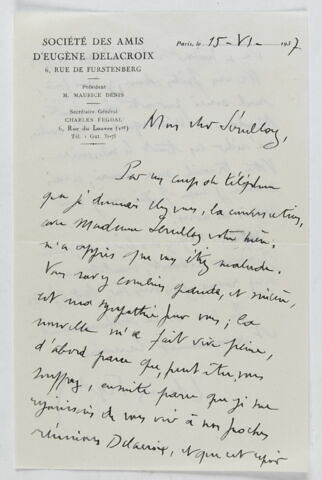 SOCIÉTÉ DES AMIS
D'EUGÈNE DELACROIX
6, RUE DE FURSTENBERG
Président
M. MAURICE DENIS
Secrétaire Général
CHARLES FEGDAL
6, Rue du Louvre (1er)
Tél. : Gut.
Paris, le 15-VI- 1937
Mon cher Sérullaz,
Par un coup de téléphone
que je donnais chez vous, la conversation,
avec Madame Sérullaz votre mère,
m'a appris que vous étiez malade.
Vous savez combien grande, et sincère,
est ma sympathie pour vous ; la
nouvelle m'a fait vive peine,
d'abord parce que, peut-être, vous
souffrez, ensuite parce que je me
réjouissais de vous voir à nos prochaines
réunions Delacroix, et que cet espoir